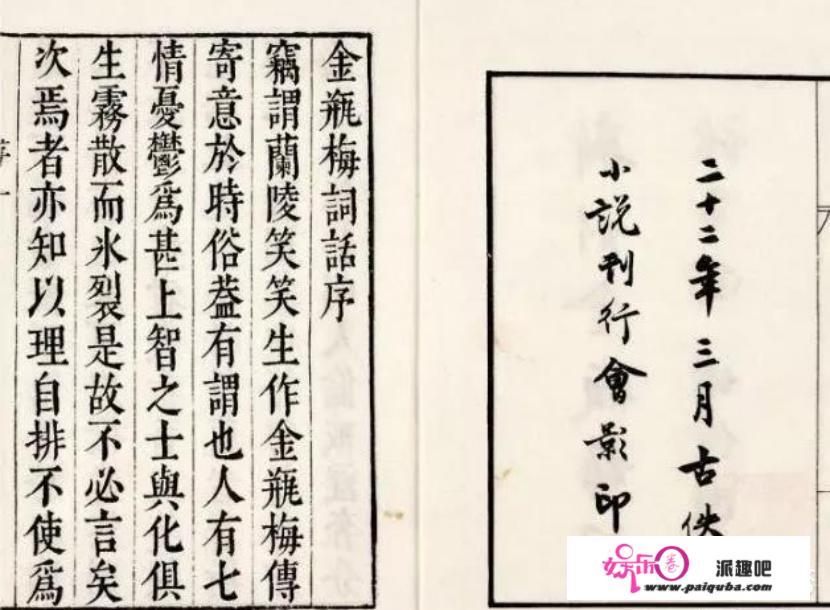 二十二年三月古佚
小説刊行會影印
金瓶梅詞話序
竊謂蘭陵笑笑生作金瓶梅傳
寄意於時俗葢有謂也人有七
情憂鬱爲甚上智之士與化俱
生霧散而氷裂是故不必言矣
次焉者亦知以理自排不使爲
娱乐圈
派趣吧
www.paiquba.com